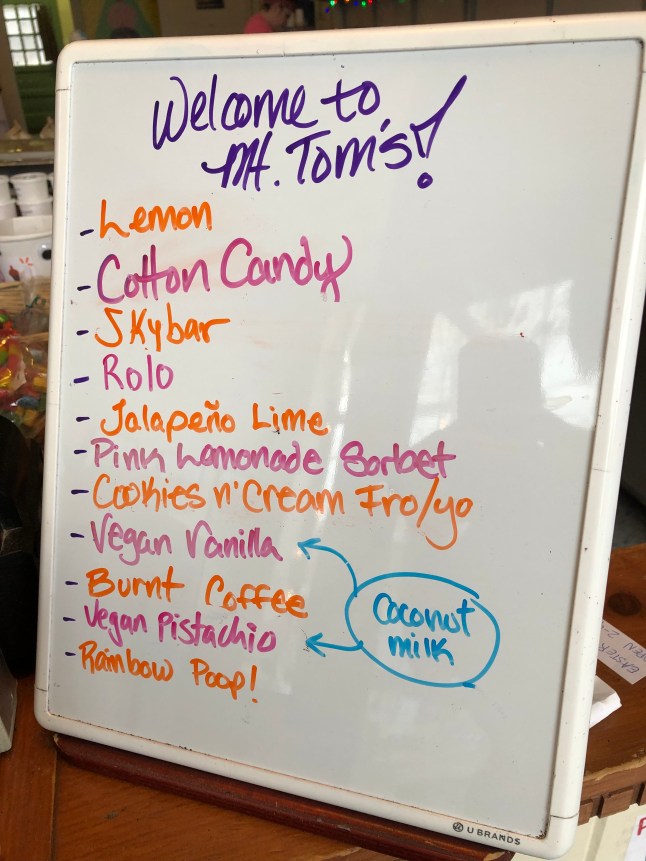 Welcome to
Mt. Tom's!
- Lemon
- Cotton Candy
- Skybar
- Rolo
- Jalapeño Lime
- Pink Lamonade Sorbet
- Cookies n' Cream Fro/yo
- Vegan Vanilla
- Burnt Coffee
- Vegan Pistachio
- Rainbow Poop!
Coconut
milk
EASTER
OPEN
U BRANDS